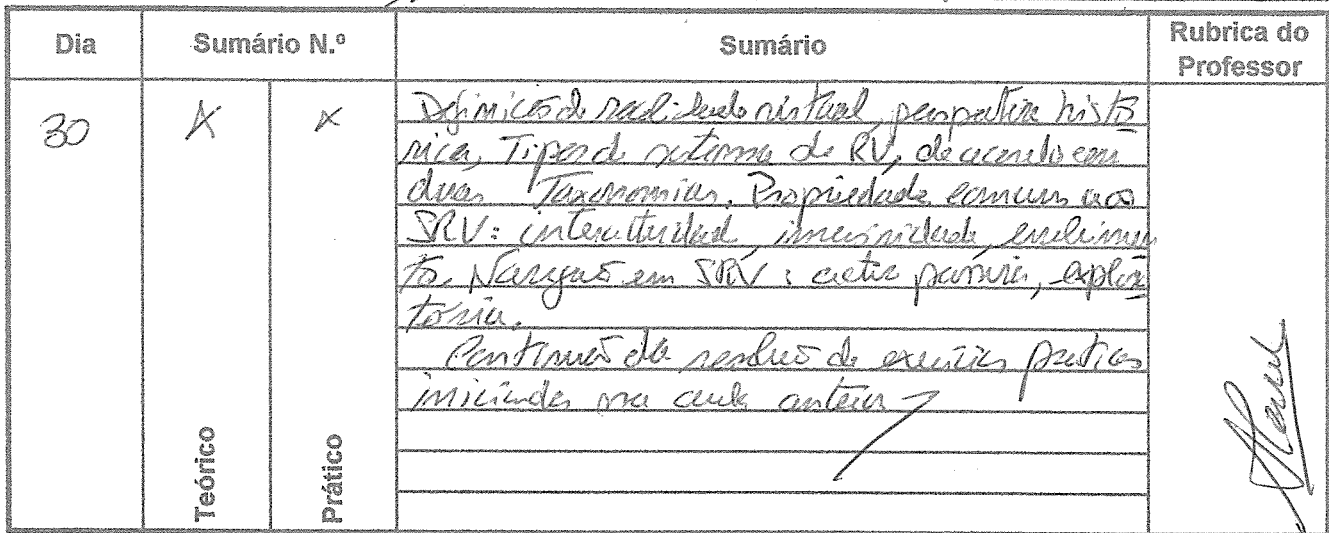 Dia Sumário N.º Sumário Rubrica do Professor
30 X X
Definição de realidade virtual, perspectiva histó
rica, Tipos de sistema de RV, de acordo com
duas Taxonomias. Propriedade comum aos
SRV: interatividade, imersividade, envolvimen
to. Navegação em SRV: activa, passiva, explora
tória.
Continuação da resolução de exercícios práticos
iniciados na aula anterior
Teórico
Prático